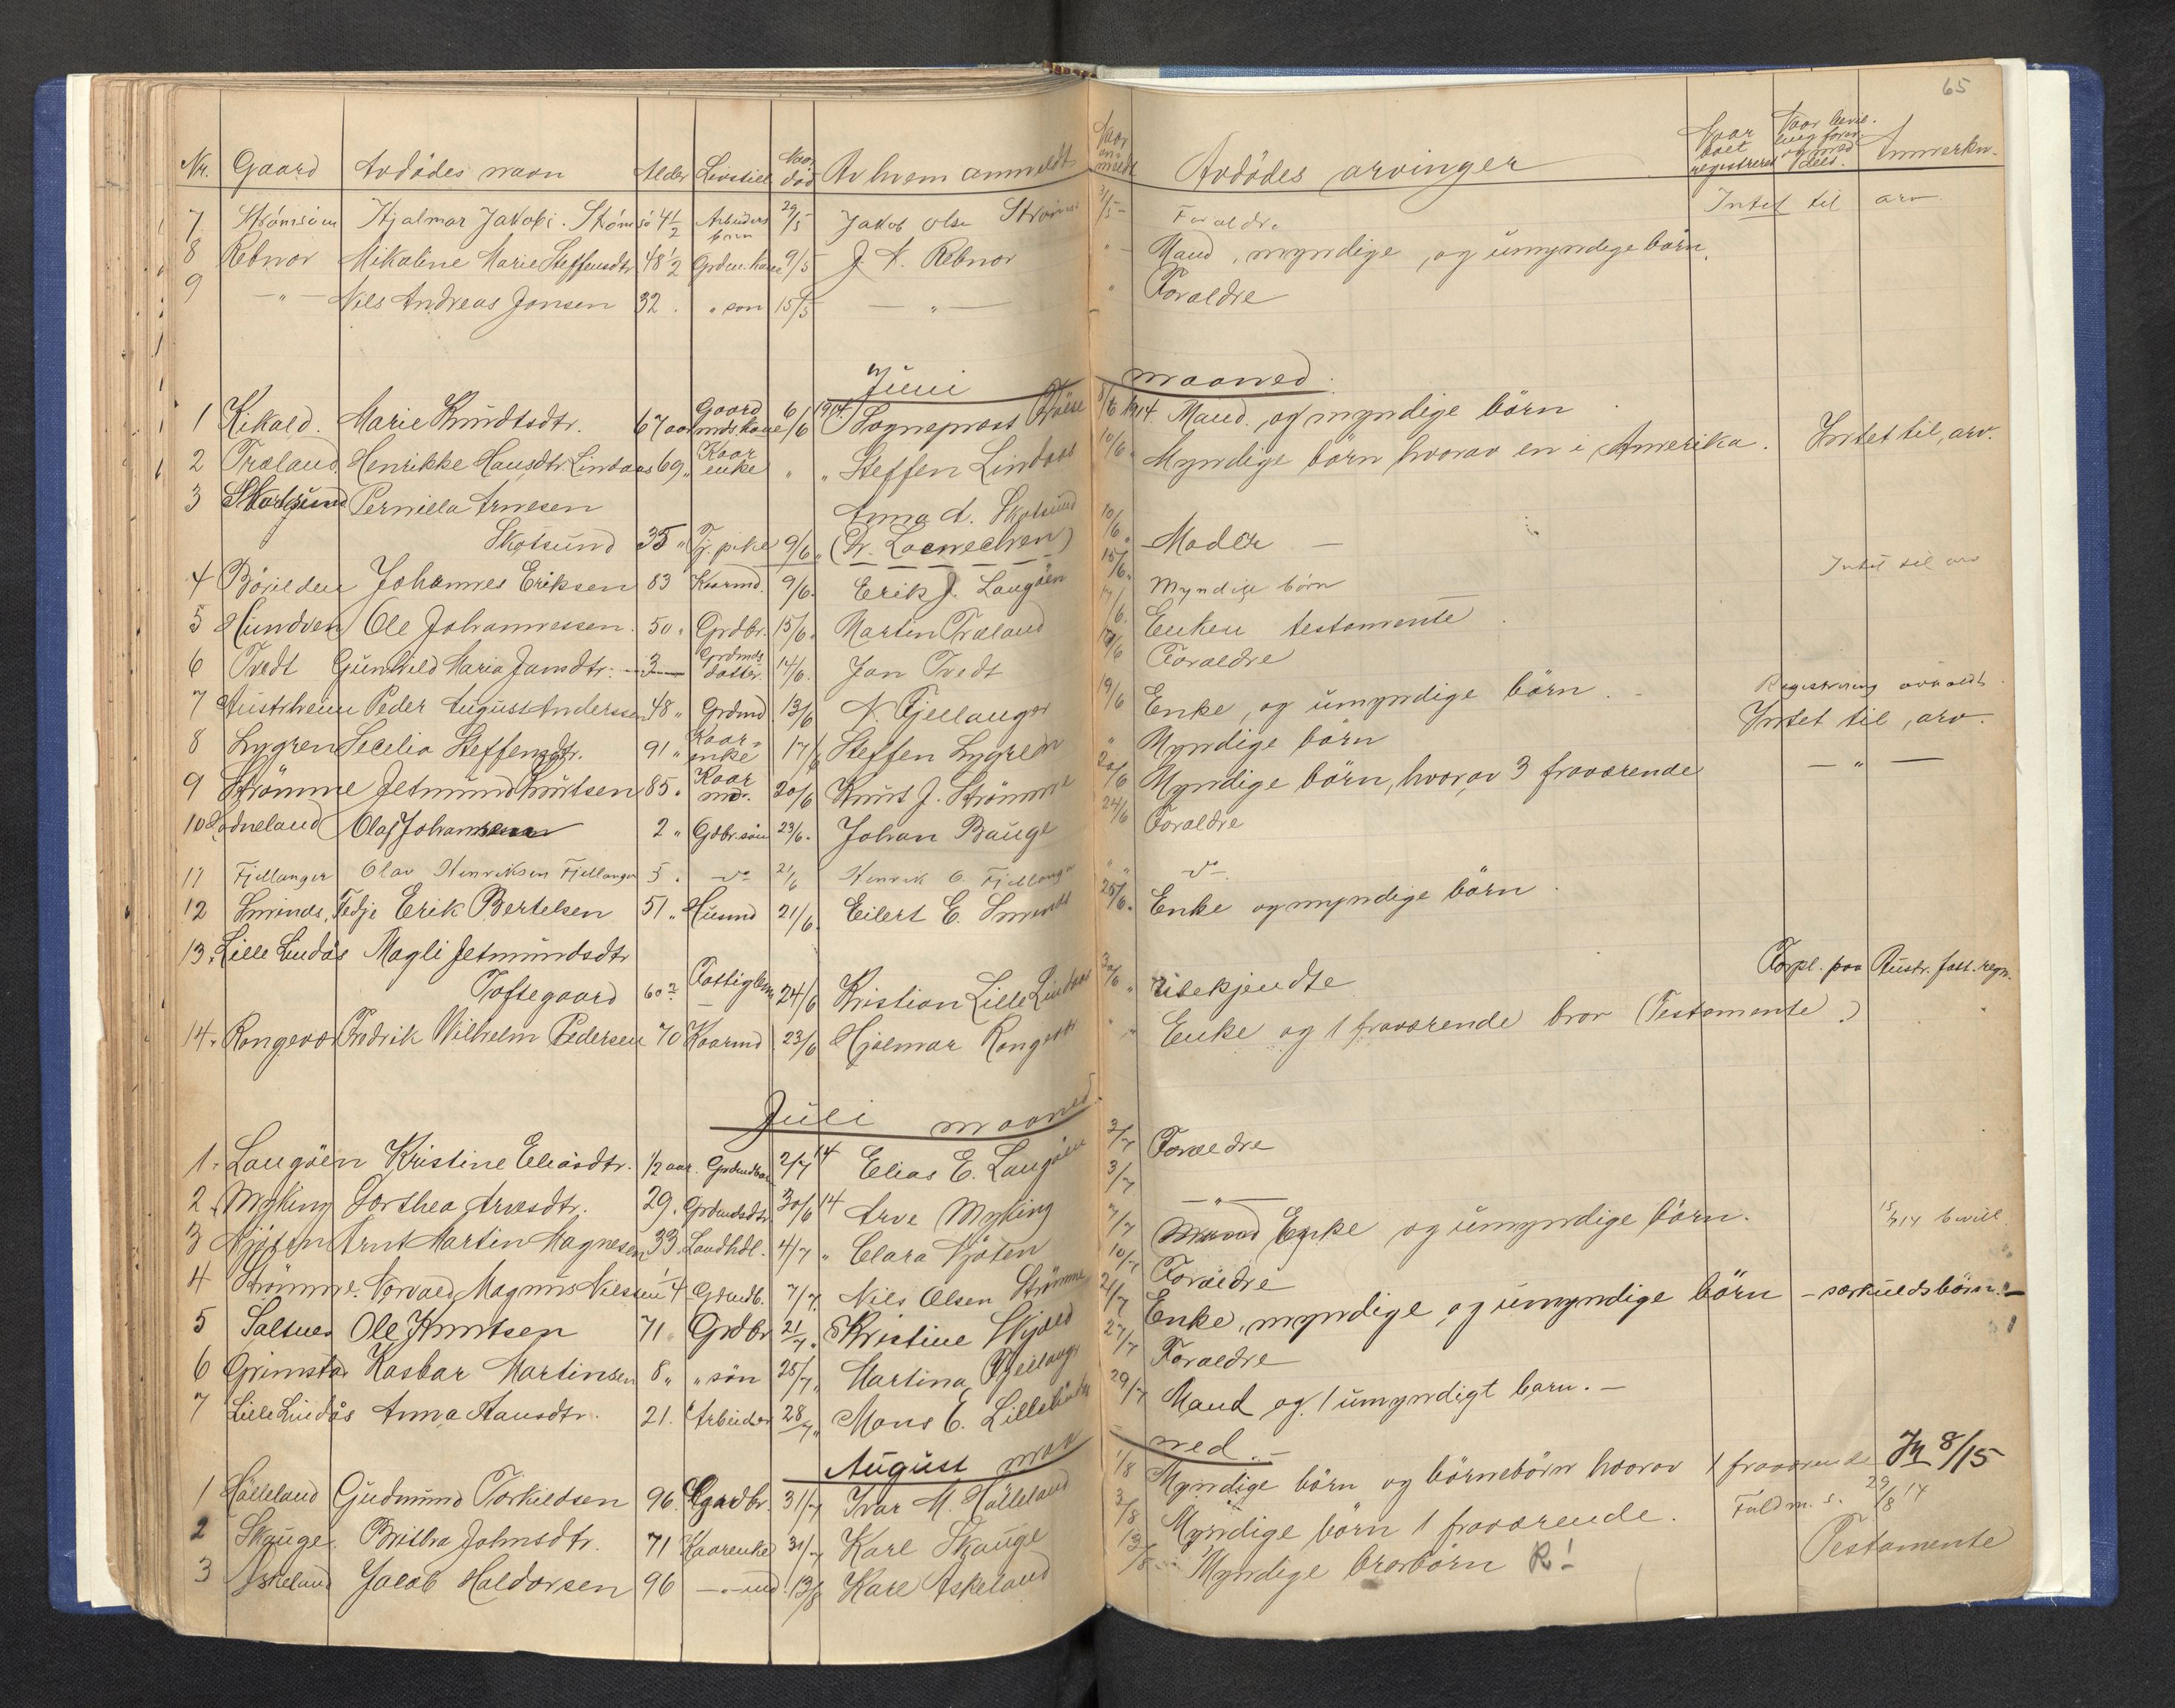 65
Nr. Gaard Avdödes navn Alder Livstill Naar död Av hvem anmeldt Naar anmeldt Avdödes arvinger Naar boet registreret Naar bevil- ling for Anmerkn.
7 Strömsöen Hjalmar Jakobs. Strömsö 4 1/2 Arbeiders barn 29/5 Jakob Olsen Strömsö 3/5 Foraldre Intet til arv
8 Rebnor Mikaline Marie Steffensdtr 48 1/2 Grdm. kone 9/5 J. A. Rebnor " Mand, myndige, og umyndige börn.
9 — " — Nils Andreas Jonsen 32. " sön 15/5 — " — " Foraldre
Juni maaned.
1 Kikald. Marie Knudtsdtr. 67 aar Gaard mdskone 6/6 1914. Sogneprest 8/6 1914. Mand. og myndige börn
2 Træland Henrikke Hansdtr. Lindaas 69 " Kaar enke " " Steffen Lindaas 10/6 " Myndige börn hvorav en i Amerika. Intet til, arv.
3 Skotsund Pernilla Arnesen Anna A. Skotsund
Skotsund 35 " Tj. pike 9/6 " 10/6 " Moder —
4 Böilden Johannes Eriksen 83 Kaarmd. 9/6. Erik J. Langöen 15/6. Myndige börn Intet til arv
5 Hundven Ole Johannessen. 50 " Grdbr. 15/6. Martin Træland 17/6. Enken testamente.
6 Tvedt Gunhild Maria Jansdtr. 3 Grdmds datter. 14/6. Jan Tvedt 18/6 Foraldre
7 Austrheim Peder August Anderssen 48 " Grdmd 13/6 N. Fjellanger 19/6 Enke, og umyndige börn. Registrering avholdt.
8 Lygren Secelia Steffensdtr. 91 " Kaar- enke 17/6 Steffen Lygren " Myndige börn Intet til, arv.
9 Strömme Jetmund Knutsen 85. Kaar md. 20/6 Knut J. Strömme 20/6 Myndige börn, hvorav 3 fraværende — " —
10 Hodneland Olaf Johannsen 2 " Gdbr. sön 23/6. Johan Bauge 24/6 Foraldre
11 Fjellanger Olav Henriksen Fjellanger 5. do 21/6 Henrik O. Fjellanger " " do
12 Sminds. Fedje Erik Bertelsen 51 " Husmd 21/6. Eilert E. 25/6. Enke og myndige börn.
13. Lille Lindås Magli Jetmundsdtr
Toftegaard 60? Fattiglem 24/6 Kristian Lille Lindaas 30/6 " ubekjendte Forpl. paa Austr. fatt. regn.
14. Rongevær Fredrik Wilhelm Pedersen 70 Kaarmd 23/6 Hjalmar Rongevær " " Enke og 1 fraværende bror (Testamente.)
Juli maaned.
1. Langöen Kristine Eliasdtr. 1/2 aar. Grdmdbarn 2/7 14 Elias E. Langöen 2/7 Foraldre
2. Myking Dorthea Arvesdtr. 29. Grdmdsdtr. 30/6 14 Arve Myking 3/7 — " —
3 Njöten Arnt Martin Magnesen 33. Landhdl. 4/7 " Clara Njöten 7/7 Mand Enke og umyndige börn. 15/7 14 bevill.
4 Strömme. Norvald Magnus Nilssen 1/4 Grdmdb. 7/7. Nils Olsen Strömme 10/7 Foraldre
5 Saltnes Ole Knutsen 71 " Grdbr 21/7. Kristine Skjold 21/7 Enke, myndige og umyndige börn – særkuldsbörn. –
6 Grimstad Kasbar Martinsen 8 " " sön 25/7 " Martina Fjellanger 27/7 Foraldre
7 Lille Lindås Anna Hansdtr. 21. Arbeider 28/7 " Mons E. Lillelindås 29/7 Mand og 1 umyndigt barn. –
August maa ned. –
1 Hölleland Gudmund Torkildsen 96. Grdbr. 31/7 Ivar M. Hölleland 1/8 Myndige börn og börnebörn hvorav 1 fraværende 8/15
2 Skauge. Britha Johnsdtr. 71 Kaarenke 31/7 Karl Skauge 3/8 Myndige börn 1 fraværende. Fuldm. s. 29/8 14
3 Askeland Jacob Haldorsen 96 — " — md 13/8 Karl Askeland 13/8 Myndige brorbörn R! Testamente